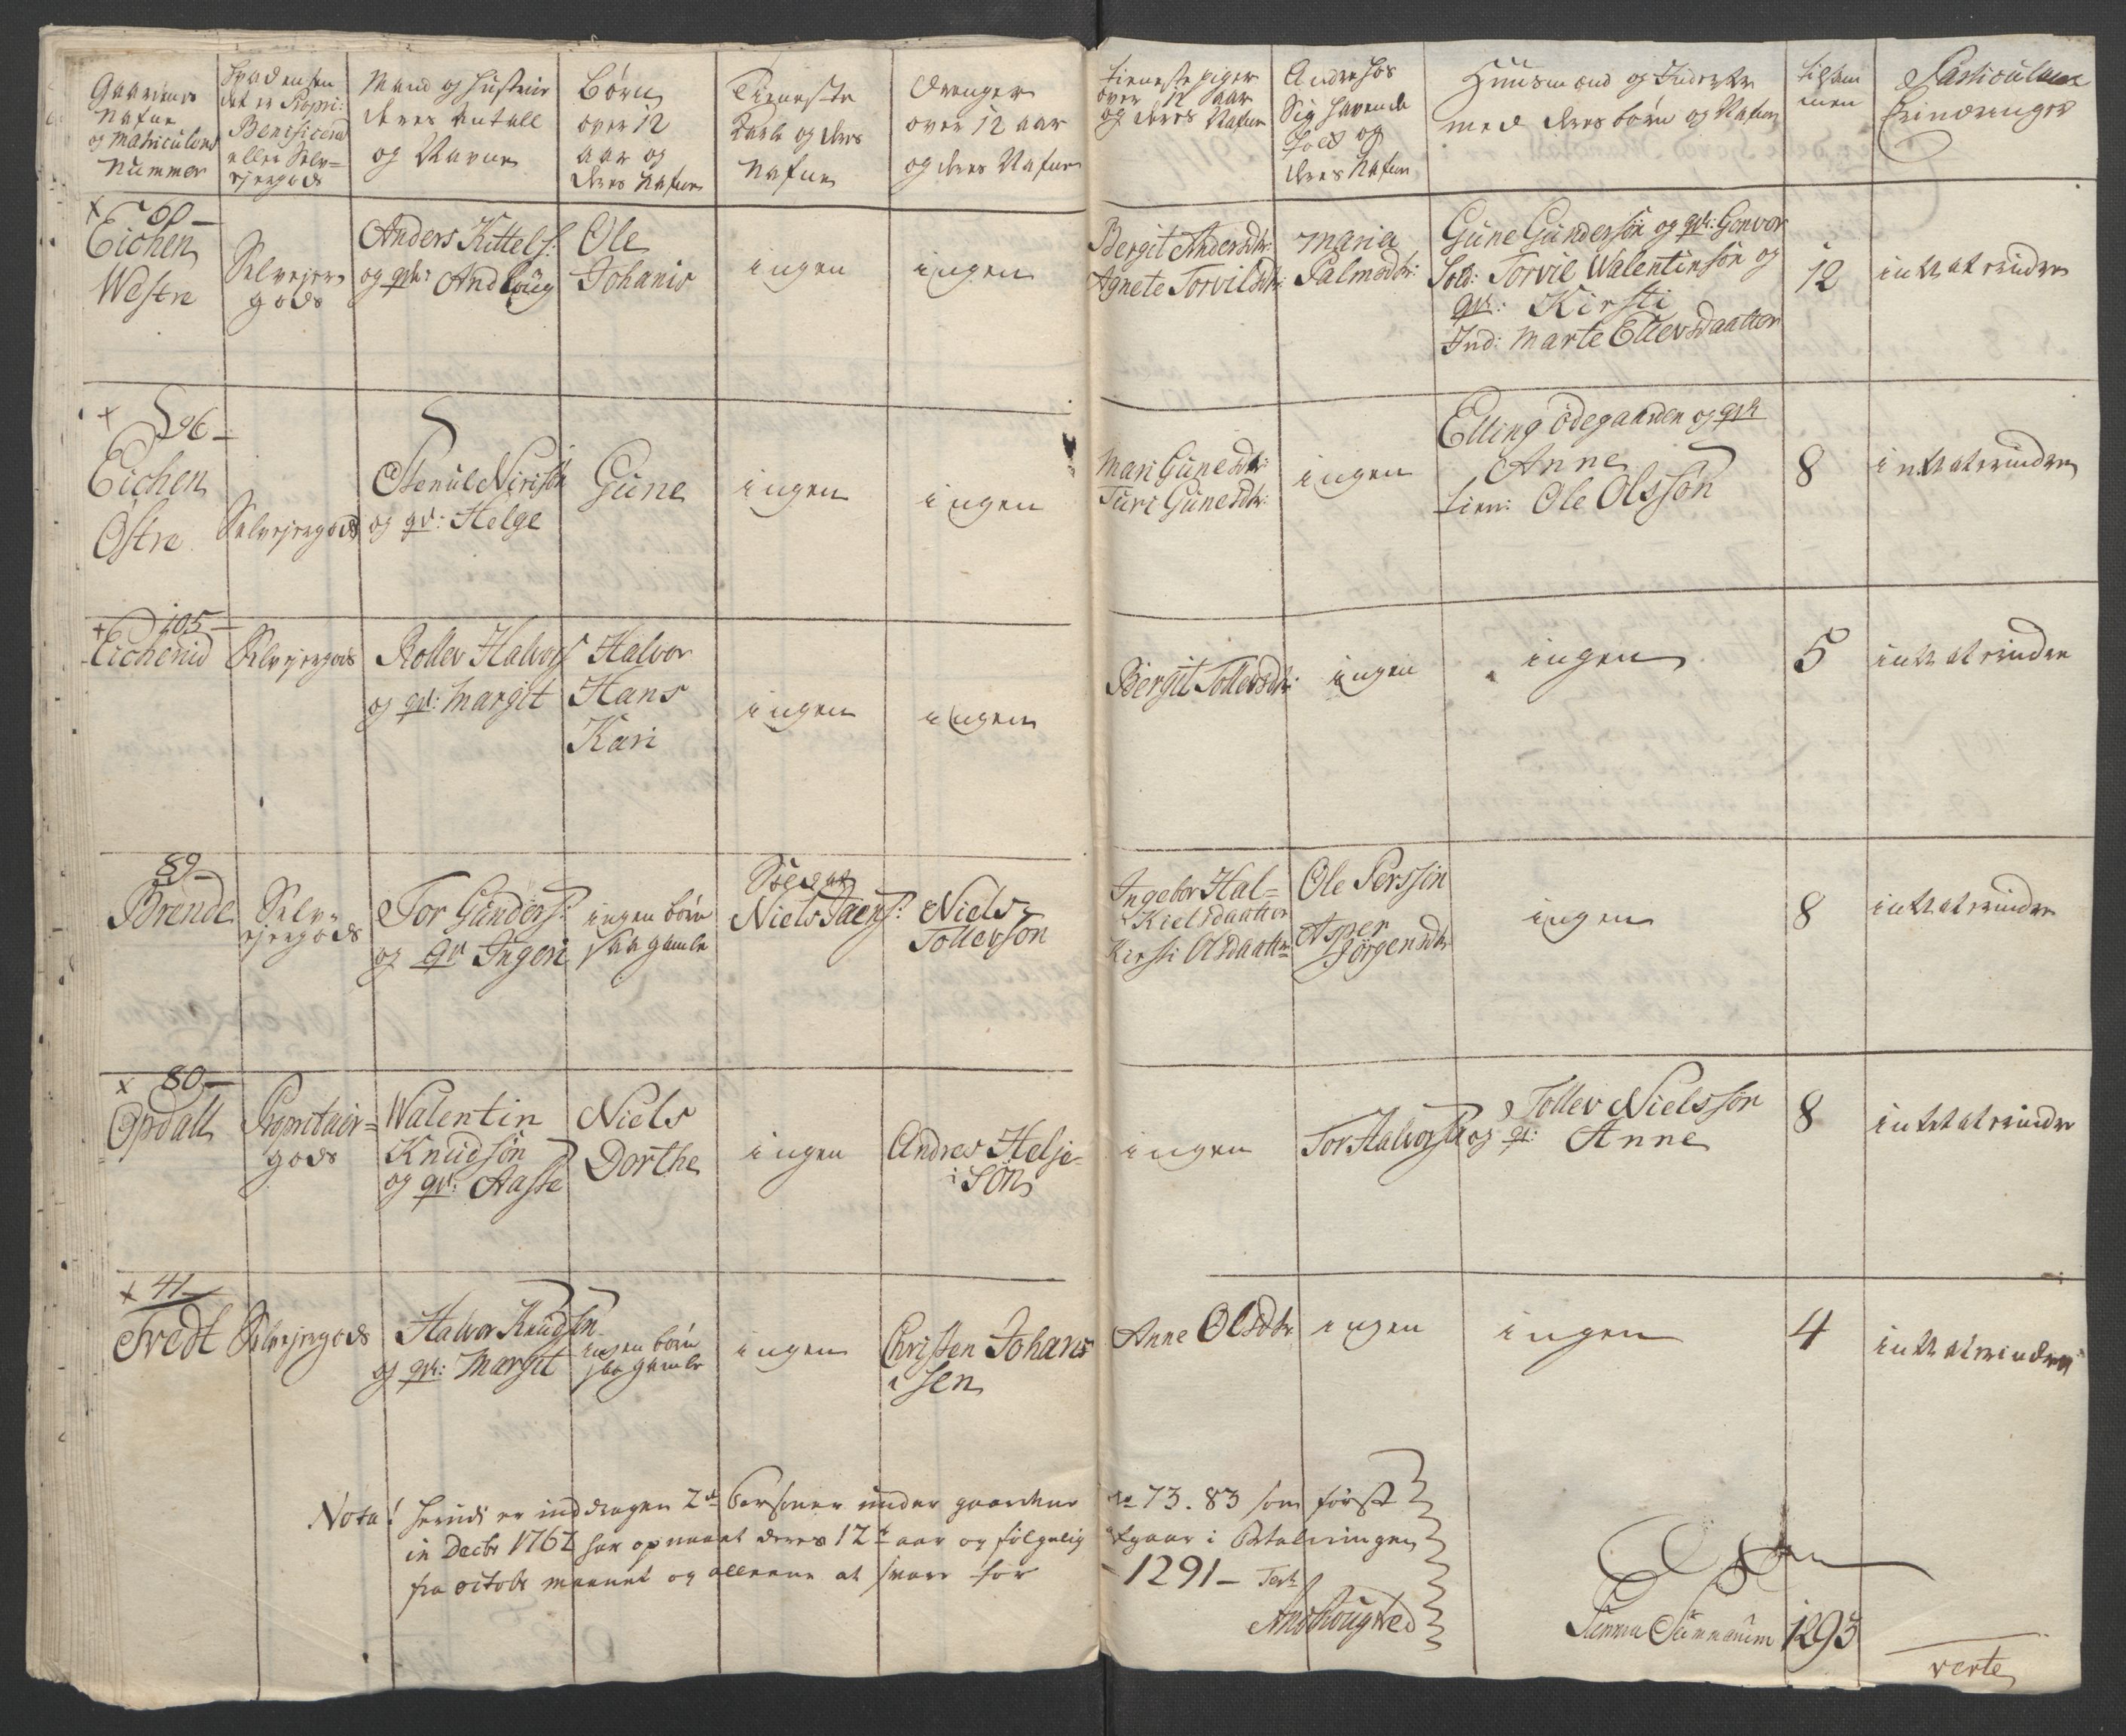 Gaardenes
Nafne
og Matriculens
Nummer
det er Propri:
Benificered
eller Selv=
ejergods
Mand og Hustrue
deres Antall
og Navne
Børn
over 12
aar og
deres Nafne
Tieneste
Karle og deres
Nafne
Drenger
over 12 aar
og deres Nafne
tieneste piger
over 12 aar
og deres Nafne
Andre hos
Sig havende
folk og
deres Nafne
Huusmænd og Inderster
med deres børn og Nafne
tilsam
men
Particulaire
Erindringer
x 60 -
Eichen
Westre
Selvejer
gods
Anders Kittels:
og qv: Andloug
Ole
Johanis
ingen
ingen
Bergit Andersdtr:
Agnete Torvildtr:
Maria
Palmesdtr:
Gune Gundersøn og qv: Gonvor
Sold: Torvil Walentinsøn og
qv: Kirsti
Ind: Marte Ellevsdaatter
12
intet at erindre
+ 96 -
Eichen
Østre
Selvejergods
Stenul Nirisøn
og qv: Helge
Gune
ingen
ingen
Mari Gunesdtr:
Turi Gunesdtr:
ingen
Elling ødegaarden og qv
Anne
tien: Ole Olssøn
8
intet at erindre
+ 105 -
Eichenid
Selvejergods
Rollev Halvors
og qv: Margit
Halvor
Hans
Kari
ingen
ingen
Bergit Tollevsdtr:
ingen
ingen
5
intet at erindre
89 -
Brende
Selv-
ejergods
Tor Gunders:
og qv Ingeri
ingen børn
saa gamle
Niels Paens:
Niels
Tollevsøn
Ingebor Hal=
Kielsdaatter
Kirsti Olsdaatter
Ole Perssøn
Asper
Jörgensdtr
ingen
8
intet at erindre
x 80 -
Opdall
Propritair=
gods
Walentin
Knudsøn
og qv: Aasse
Niels
Dorthe
ingen
Andres Helje-
søn
ingen
Tor Halvorsøn
Tollev Nielssøn
og qv: Anne
8
intet at erindre
x 41 -
Tvedt
Selvejergods
Halvor Knudsøn
og qv: Margit
ingen børn
saa gamle
ingen
Christen Johans
sen
Anne Olsdtr
ingen
ingen
4
intet at erindre
Nota! herudi er inddragen 2de Personer under gaardene No 73. 83 som først
in Decbr 1762 har opnaaet deres 12te aar og følgelig afgaar i Betalningen
fra octobr maanet og allene at svare for - 1291 -
Summa Summarum 1293
verte